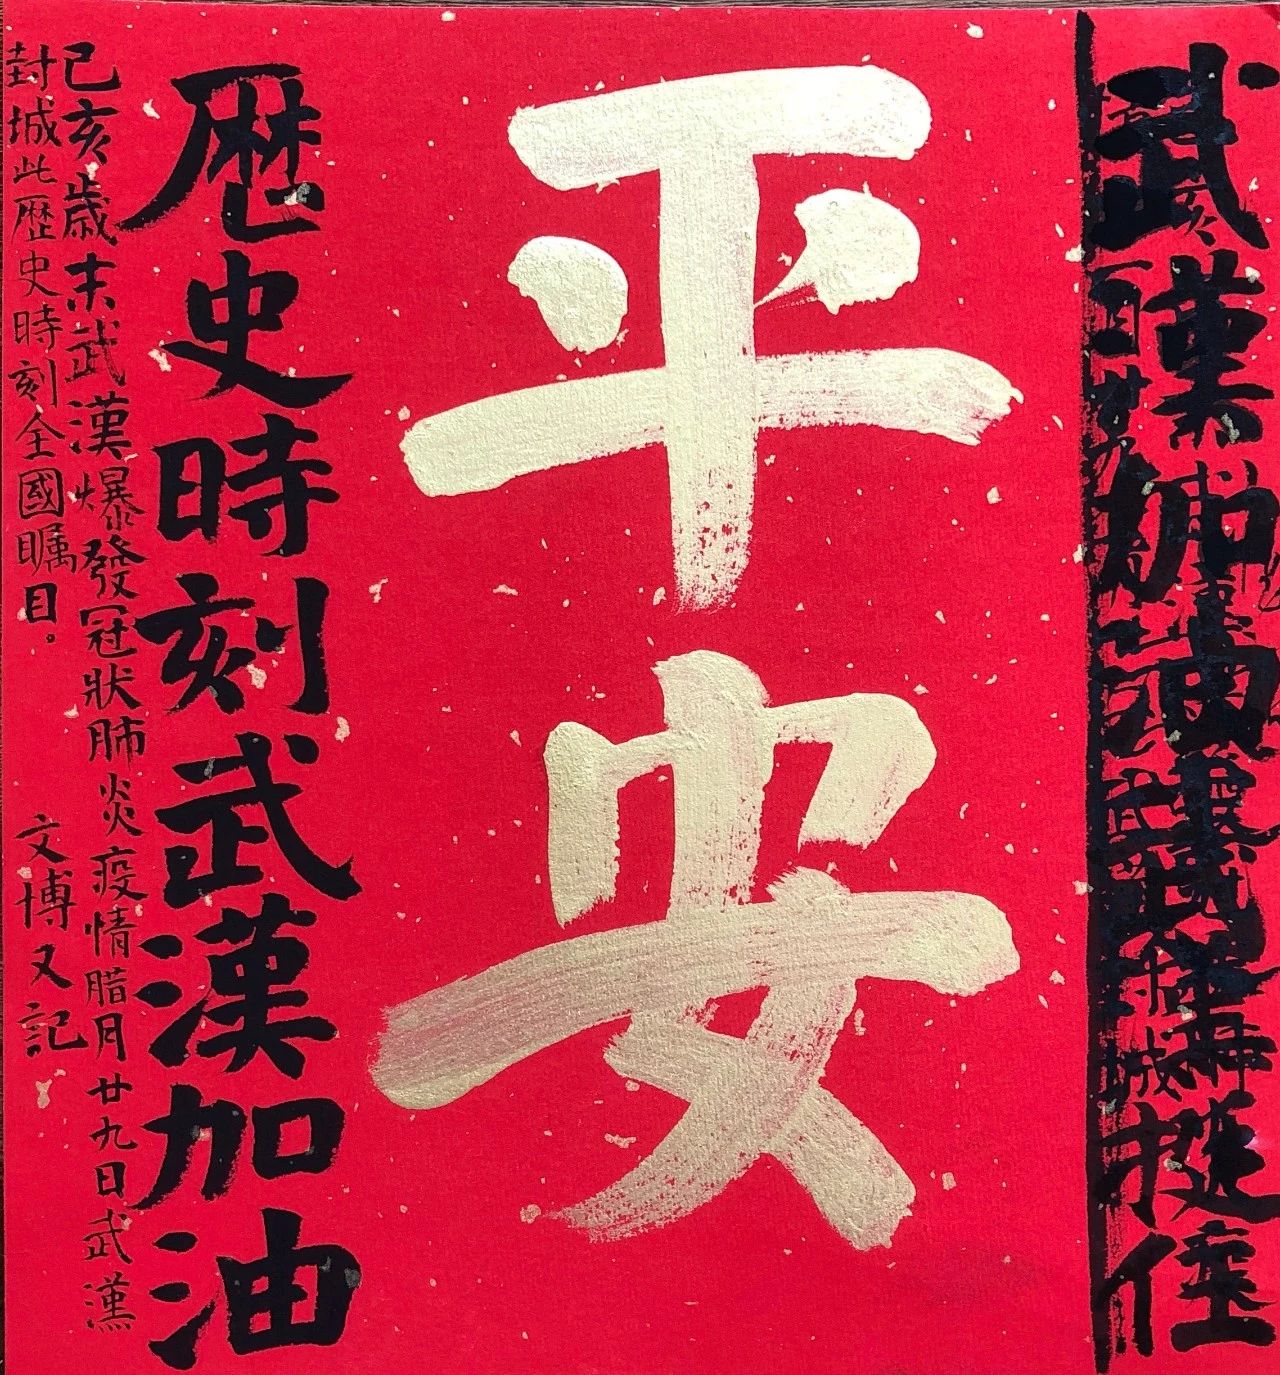 武漢加油武漢挺住
平安
歴史時刻武漢加油
己亥歲末武漢爆發冠狀肺炎疫情腊月廿九日武漢
封城此歴史時刻全國矚目。
文博又記